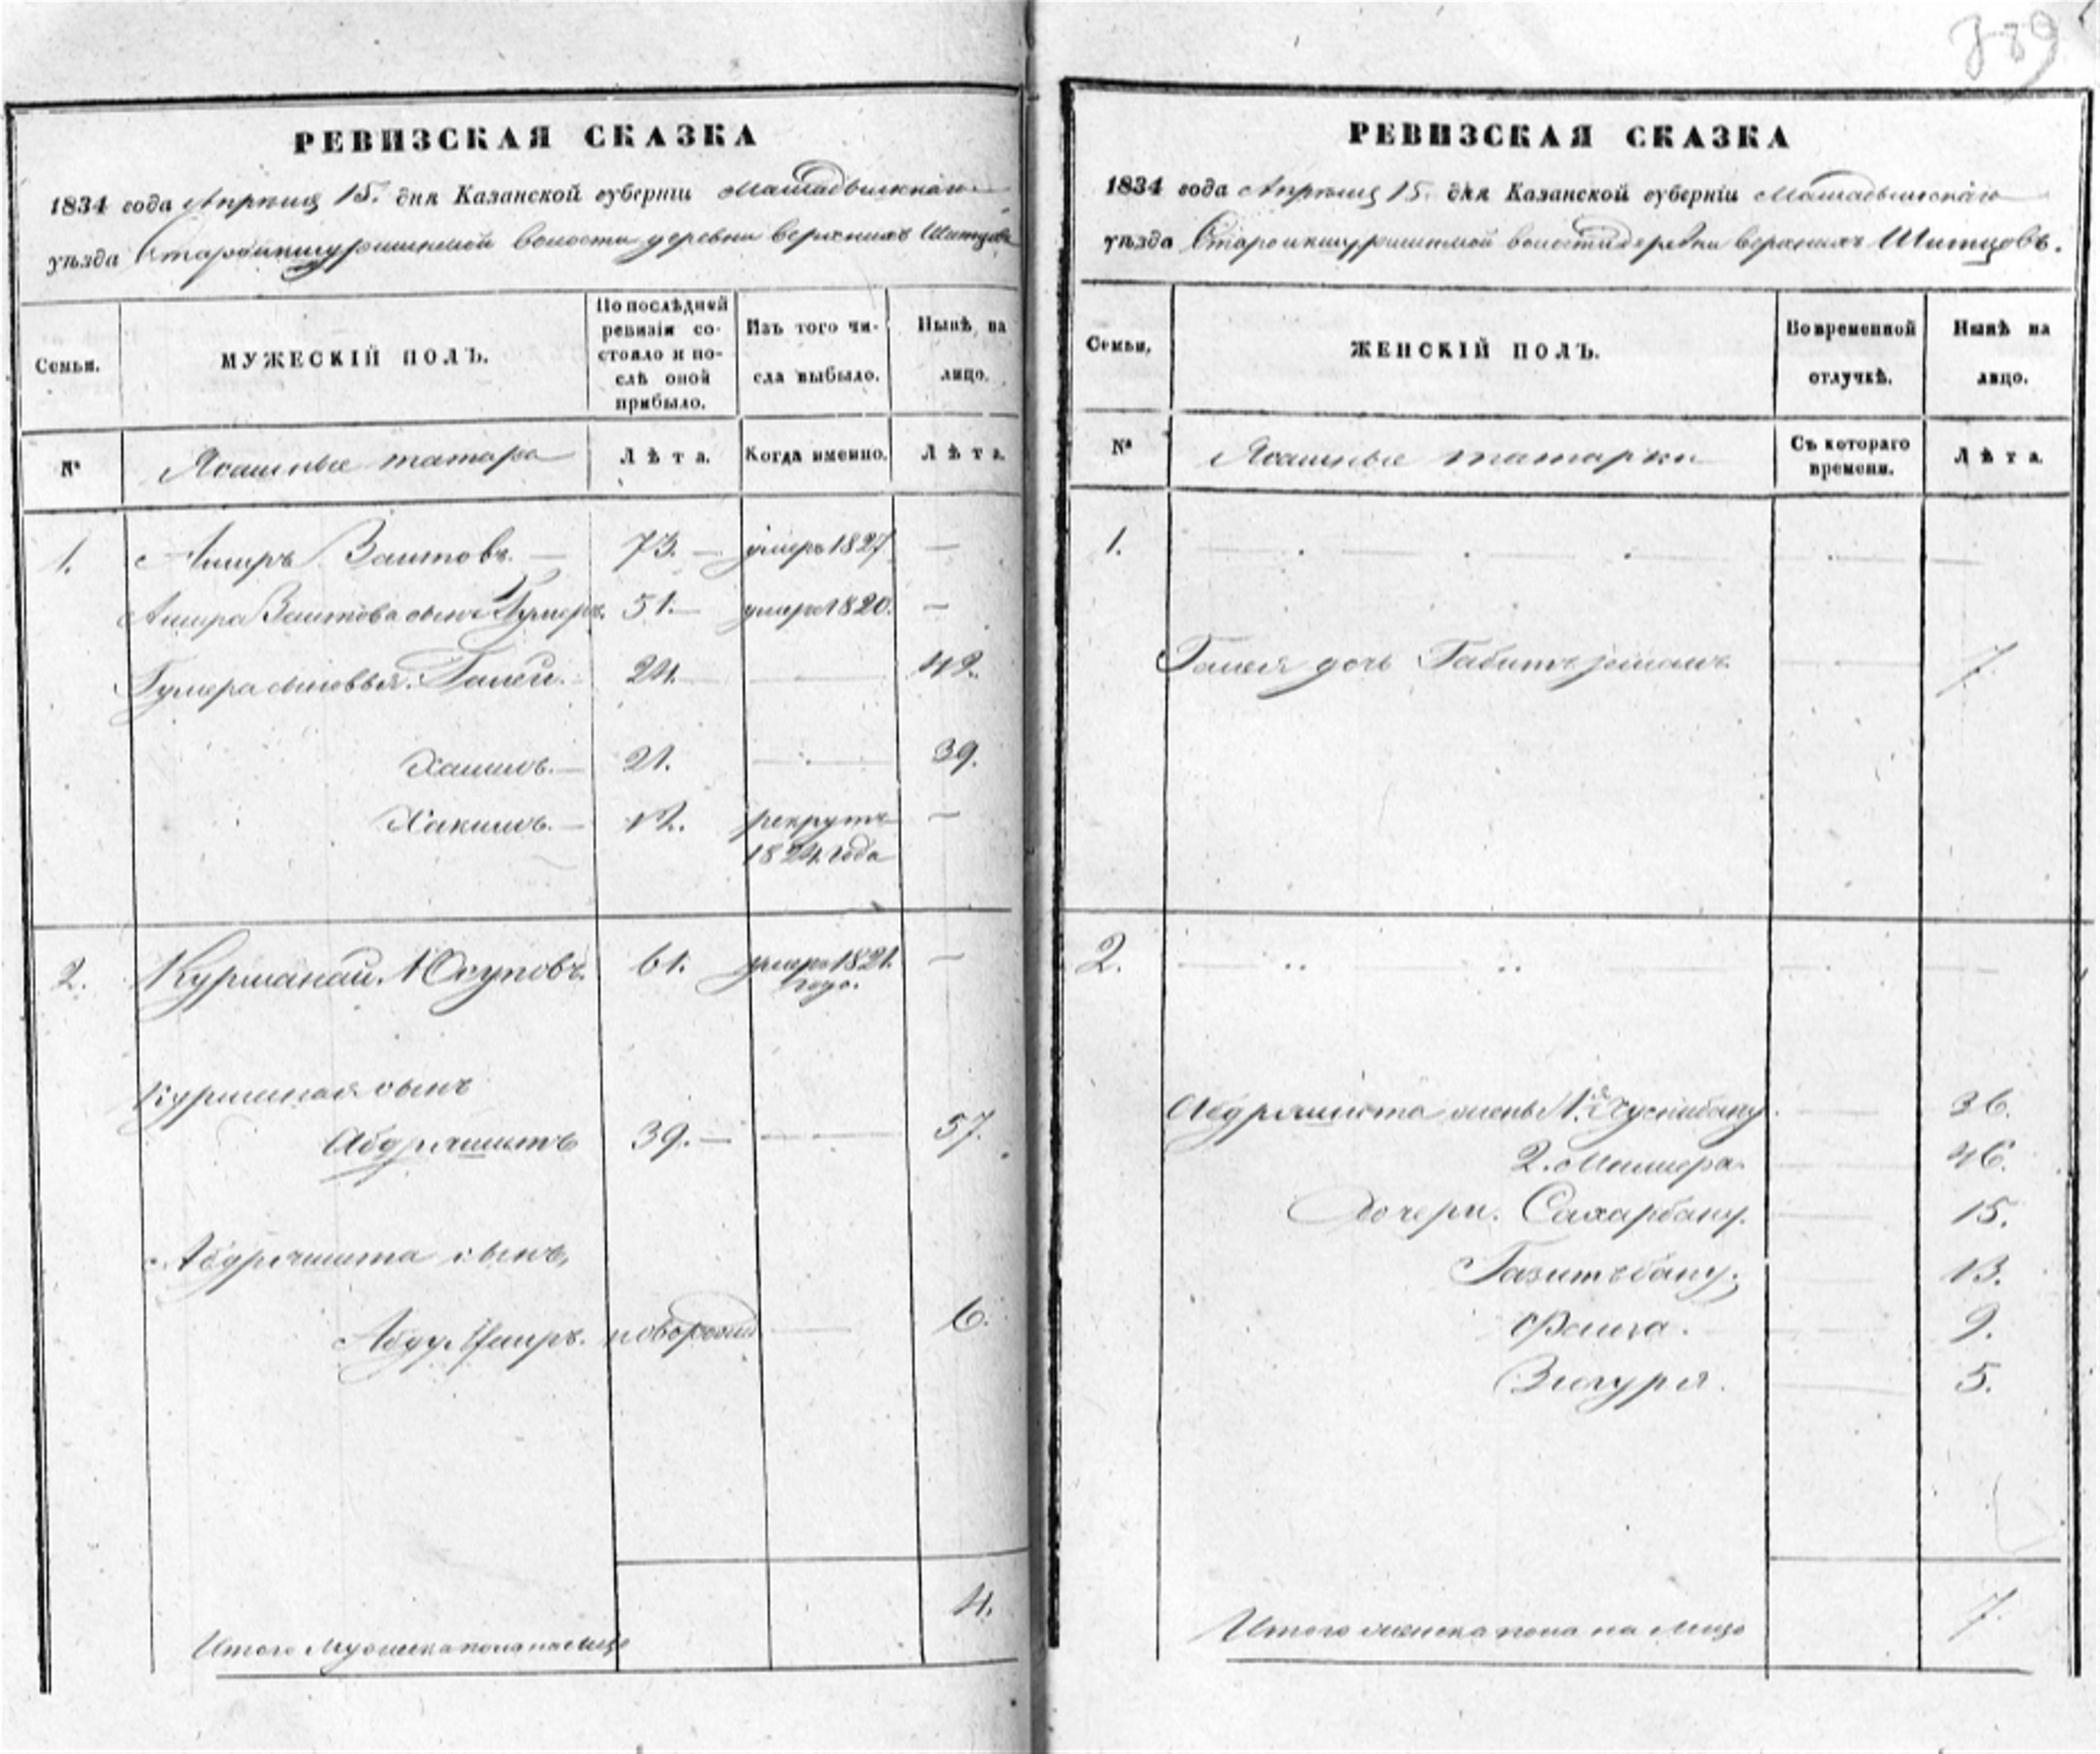 389
РЕВИЗСКАЯ СКАЗКА
1834 года Апреля 15. дня Казанской губерніи Мамадышскаго
уѣзда Староикшурминской волости деревни верхнихъ Шитцовъ
Семьи.
МУЖЕСКІЙ ПОЛЪ.
По послѣдней ревизіи состояло и послѣ оной прибыло.
Изъ того числа выбыло.
Нынѣ на лицо.
№
Ясашные татара
Лѣта.
Когда именно.
Лѣта.
1. Амиръ Заитовъ. — 73. — умеръ 1827 —
Амира Заитова сынъ Гумеръ. 51. — умеръ 1820. —
Гумера сыновья. Галей. 24. — 42.
Халилъ. — 21. — 39.
Хакимъ. — 12. рекрутъ —
1824 года
2. Курманай Юсуповъ. 61. умеръ 1821. —
года.
Курманая сынъ
Абдряшитъ 39. — 57.
Абдряшита сынъ,
Абду 6.
новорожд
4.
Итого Мужеска пола на лицо
РЕВИЗСКАЯ СКАЗКА
1834 года Апреля 15. дня Казанской губерніи Мамадышскаго
уѣзда Староикшурминской волости деревни верхнихъ Шитцовъ.
Семьи.
ЖЕНСКІЙ ПОЛЪ.
Во временной отлучкѣ.
Нынѣ на лицо.
№
Ясашные татарки
Съ котораго времени.
Лѣта.
1.
Галея дочь 7.
2.
Абдряшита жены 1.я 36.
2. 46.
Дочери. Сахарбану. 15.
13.
Фаиза. 9.
Зюгуря. 5.
7.
Итого женска пола на лицо